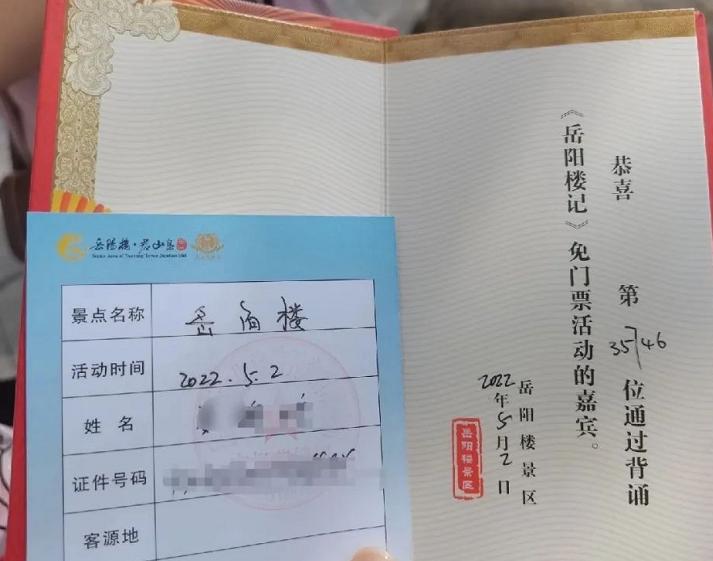 岳阳楼·君山岛
景点名称 岳阳楼
活动时间 2022.5.2
姓名
证件号码
客源地
恭喜 第 35746 位通过背诵
《岳阳楼记》免门票活动的嘉宾。
岳阳楼景区
2022年5月2日
岳阳楼景区